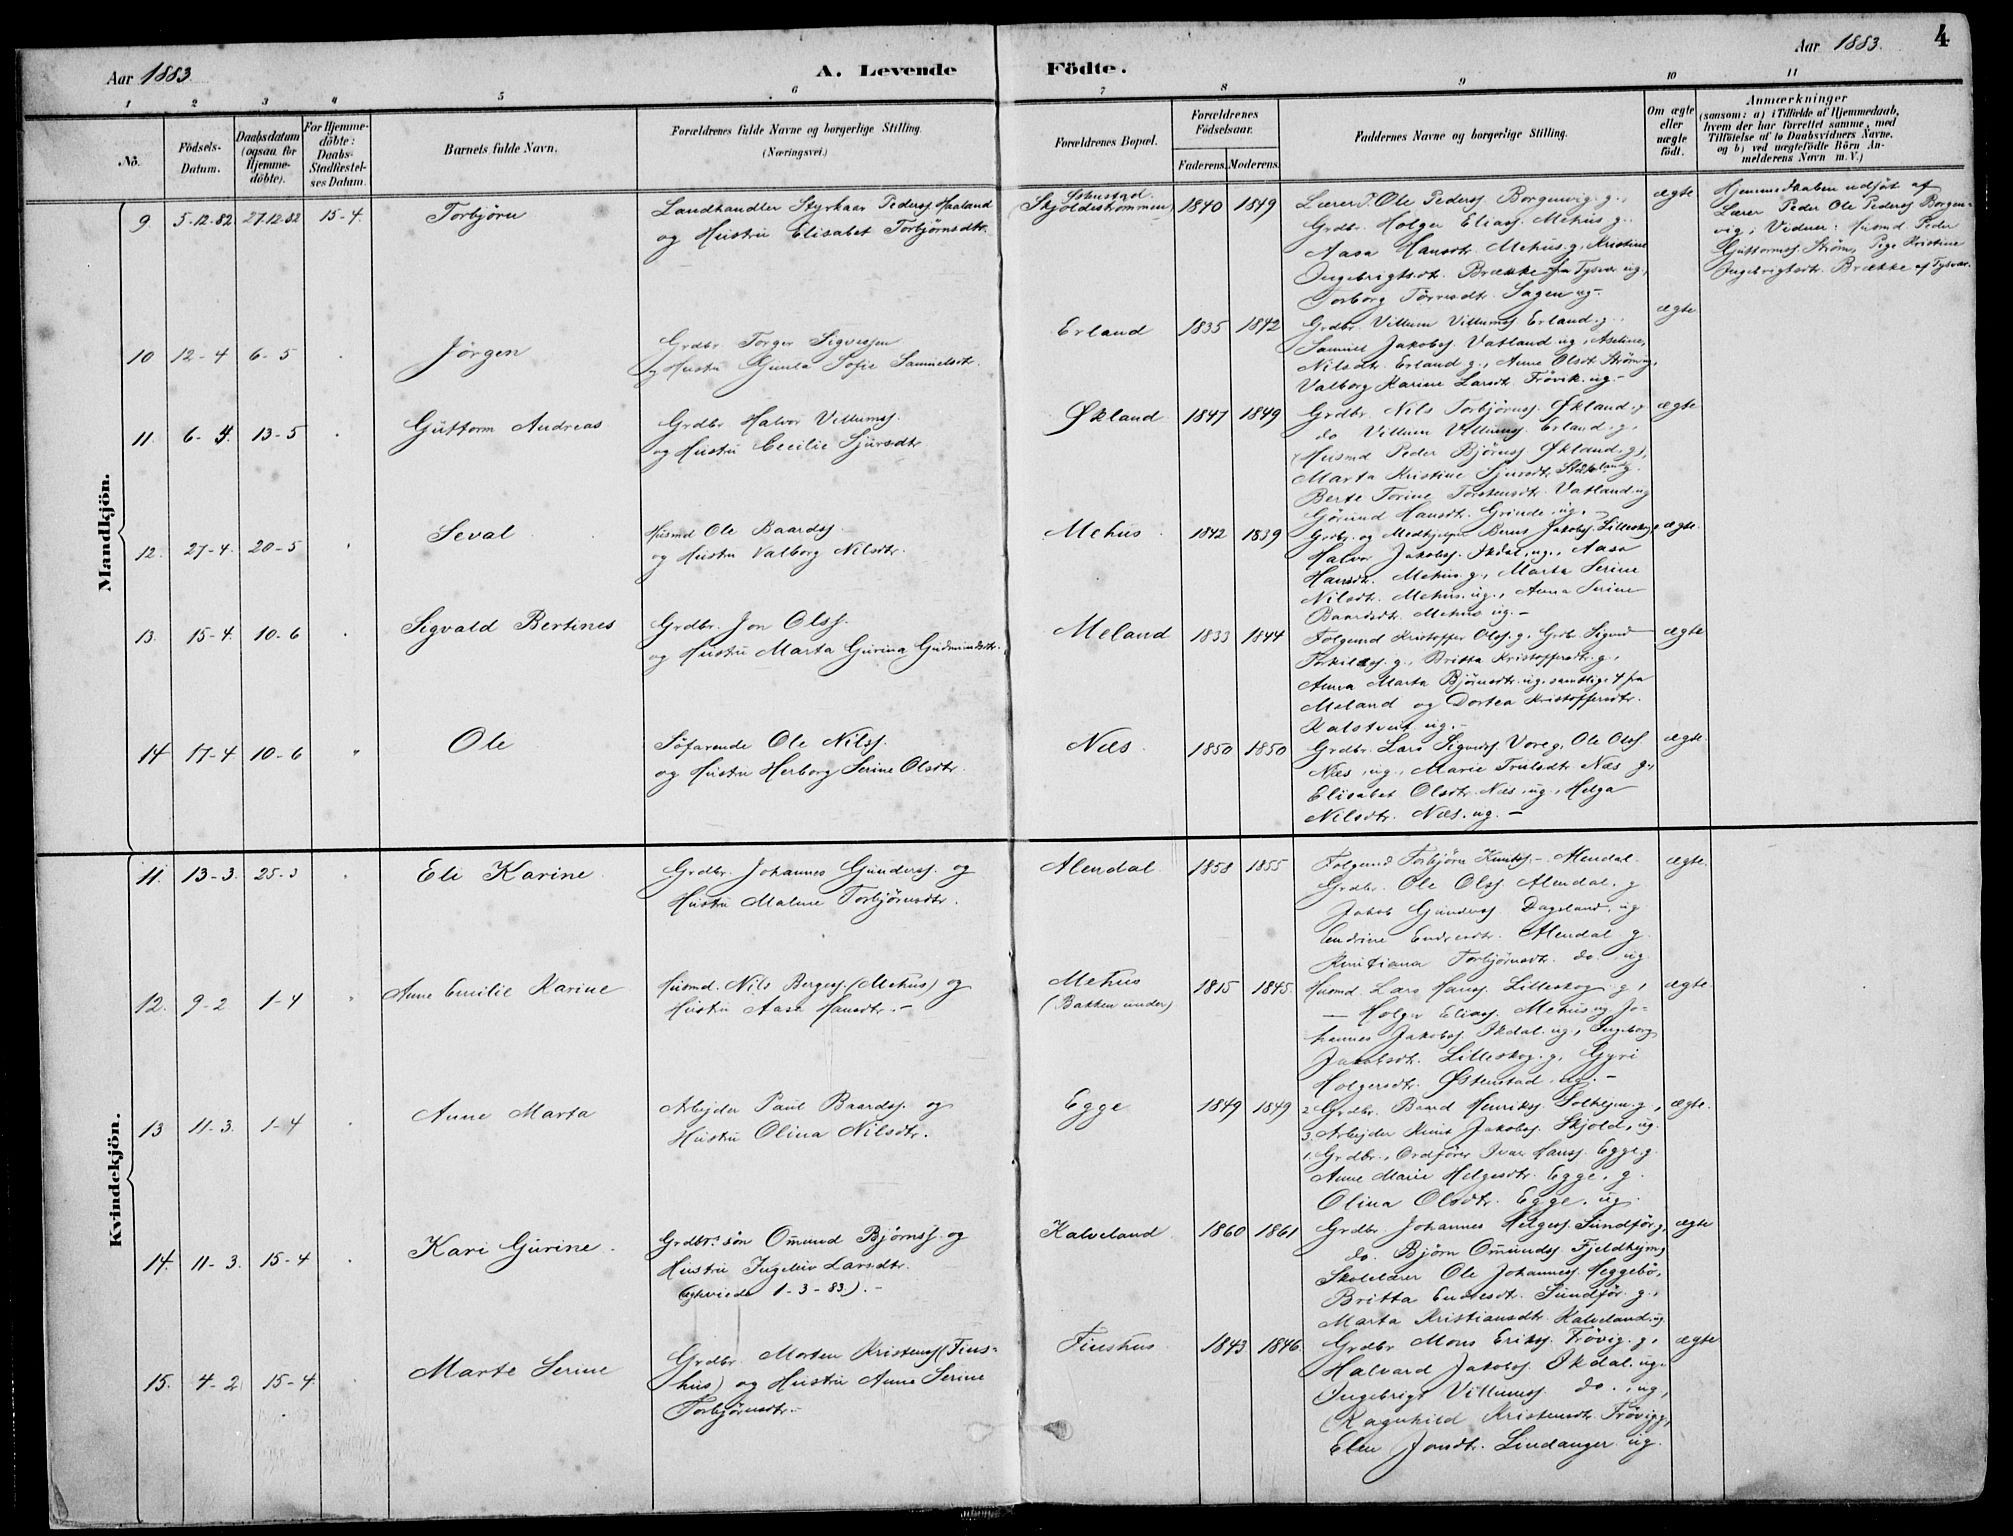 Aar 1883.
A. Levende Födte.
Aar 1883.
4
1 2 3 4 5 6 7 8 9 10 11
No.
Födsels-Datum.
Daabsdatum (ogsaa for Hjemmedöbte).
For Hjemmedöbte: Daabs-Stadfæstelses Datum.
Barnets fulde Navn.
Forældrenes fulde Navne og borgerlige Stilling. (Næringsvei.)
Forældrenes Bopæl.
Forældrenes Födselsaar.
Faderens. Moderens.
Faddernes Navne og borgerlige Stilling.
Om ægte eller uægte födt.
Anmærkninger
(saasom: a) i Tilfælde af Hjemmedaab,
hvem der har forrettet samme, med
Tilföielse af to Daabsvidners Navne,
og b) ved uægtefödte Börn Anmelderens Navn m. V.)
Mandkjön.
9 5-12-82 27.12.82 15-4. Torbjörn
Landhandler Styrkaar Peders. Haaland
og Hustru Elisabet Torbjörnsdtr.
Skjoldestrømmen 1840 1849
Lærer P. Ole Peders. Borgenvig. g.,
Grdbr. Holger Elias. Mehus g.
Aasa Hansdtr. Mehus. g., Kristine
Ingebrigtsdtr. Brække fra Tysvær ug.,
Torborg Törresdtr. Sagen ug.
ægte
Hjemmedaaben udført af
Lærer Peder Ole Peders. Borgen-
vig; Vidner: Husmd. Peder
Guttorms. Strøm, Pige Kristine
Ingebrigtsdtr. Brække af Tysvær.
10 12-4 6-5 Jörgen
Grdbr. Torger Sigvessen
og Hustru Gunla Sofie Samuelsdtr.
Erland 1835 1842
Grdbr. Villum Villums. Erland. g.
Samuel Jakobs. Vatland ug., Aseline
Nilsdtr. Erland g., Anne Olsdtr. Strøm ug.,
Valborg Karine Larsdtr. Trövik. ug. -
ægte
11. 6-4. 13-5 Guttorm Andreas
Grdbr. Halvor Villums.
og Hustru Cecilie Sjursdtr.
Økland 1847 1849
Grdbr. Nils Torbjörns. Økland. g
do Villum Villums. Erland. g,
Husmd Peder Björns. Økland. g.,
Marta Kristine Sjursdtr.
Berte Torine Torstensdtr. Vatland ug
Görund Hansdtr. Grinde. ug.
ægte
12. 27-4. 20-5 Seval
Husmd Ole Baards.
og Hustru Valborg Nilsdtr.
Mehus 1842 1839
Grdbr. og Medhjelper Bernt Jakobs. Lilleskog
Halvor Jakobs. Ikdal. ug., Aasa
Hansdtr. Mehus. g., Marta Serine
Nilsdtr. Mehus. ug., Anna Serine
Baardsdtr. Mehus ug. -
ægte.
13. 15-4. 10-6 Sigvald Bertines
Grdbr. Jon Ols.
og Hustru Marta Gurina Gudmundsdtr.
Meland 1833 1844
Folgemd Kristoffer Ols. g., Grdbr. Sigurd
Torkilds. g., Britta Kristoffersdtr. g.,
Anna Marta Björnsdtr. ug. samtlige 4 fra
Meland og Dortea Kristoffersdtr.
Kalstveit ug. -
ægte
14 17-4 10-6 Ole
Söfarende Ole Nils.
og Hustru Herborg Serine Olsdtr.
Næs 1850 1850
Grdbr. Lars Sigurds. Vore g., Ole Ols.
Næs, ug., Marie Trulsdtr. Næs g.,
Elisabet Olsdtr. Næs, ug., Helga
Nilsdtr. Næs. ug. -
ægte.
Kvindekjön.
11. 13-3. 25-3 Eli Karine
Grdbr. Johannes Gunders. og
Hustru Malene Torbjörnsdtr.
Alendal. 1858 1855
Folgemd Torbjörn Knuts. - Alendal.
Grdbr. Ole Ols. Alendal. g
Jakob Gunders. Dagsland. ug
Endrine Endresdtr. Alendal. g.
Kristiana Torbjörnsdtr. do. ug
ægte.
12. 9-2 1-4 Anne Emilie Karine
Husmd. Nils Berges. (Mehus) og
Hustru Aasa Hansdtr. -
Mehus
(Bakken under) 1815 1845.
Husmd. Lars Hans. Lilleskog. g,
- Holger Elias. Mehus ug Jo-
hannes Jakobs. Ikdal. ug., Ingeborg
Jakobsdtr. Lilleskog. g, Gyri
Holgersdtr. Østenstad. ug. -
ægte.
13 11-3. 1-4 Anne Marta
Arbejder Paul Baards. og
Hustru Olina Nilsdtr.
Egge 1849 1849
2. Grdbr. Baard Henriks. Solheim. g,
3. Arbejder Knut Jakobs. Skjold, ug.
1. Grdbr., Ordfører Ivar Hans. Egge. g.
Anne Marie Helgesdtr. Egge, g.
Olina Olsdtr. Egge, ug.
ægte.
14. 11-3. 15-4 Kari Gurine.
Grdbr. sön Omund Björns. og
Hustru Ingeleiv Larsdtr.
(Egteviede 1-3-83). -
Kalveland 1860 1861
Grdbr. Johannes Helges. Sundför g,
do. Björn Omunds. Fjeldhejm g
Skolelærer Ole Johannes. Heggebö,
Britta Endresdtr. Sundför. g.,
Marta Kristiansdtr. Kalveland. ug
ægte
15. 4-2 15-4. Marte Serine
Grdbr. Morten Kristens. (Tins-
hus) og Hustru Anne Serine
Torbjörnsdtr. -
Tinshus. 1843 1846.
Grdbr. Mons Eriks. Trövig. g,
Halvard Jakobs. Ikdal. ug.
Ingebrigt Villums. do., ug,
Ragnhild Kristensdtr. Trövig g,
Elen Jonsdtr. Lindanger ug.
ægte